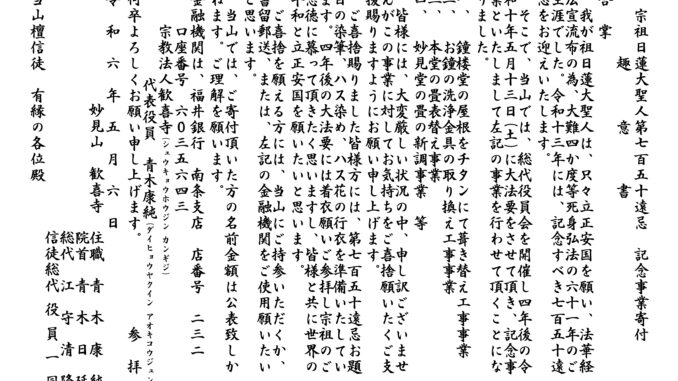 宗祖日蓮大聖人第七百五十遠忌　記念事業寄付
趣　意　書
掌
我が祖日蓮大聖人は、只々立正安国を願い、法華経
宣流布の為、大難四か度等死身弘法の六十一年のご
生涯でした。令和十三年には、記念すべき七百五十遠
忌をお迎えいたします。
そこで、当山では、総代役員会を開催し四年後の令
和十年五月十三日（土）に大法要をさせて頂き、記念事
業といたしまして左記の事業を行わせて頂くことにな
りました。
一、鐘楼堂の屋根をチタンにて葺き替え工事事業
二、お鐘の洗浄金具の取り換え工事事業
三、本堂の畳表替え事業
四、妙見堂の畳の新調事業　等
皆様には、大変厳しい状況の中、申し訳ございませ
んがこの事業に対してお気持ちをご喜捨願いたくご支
援賜りますようにお願い申し上げます。
ご喜捨賜りました皆様方には、第七百五十遠忌お題
目の染筆、ハス染め、ハス花の行衣を準備いたしてい
ます。四年後の大法要には着衣願いご参拝し宗祖のご
恩徳に慕って頂きたく思いますし、皆様と共に世界の
平和と立正安国を願いたいと思います。
ご喜捨を願える方には、当山にご持参いただくか、
書留郵送、または、左記の金融機関をご使用願いたい
と思います。
当山では、ご寄付頂いた方の名前金額は公表致しか
ねます。ご理解を願います。
金融機関は、福井銀行　南条支店　店番号　二三二
口座番号　六〇三五六四三
宗教法人歓喜寺（シュウキョウホウジン　カンギジ）
代表役員　青木康純（ダイヒョウヤクイン　アオキコウジュン
何卒よろしくお願い申し上げます。
参　拝
令　和　六　年　五　月　六　日
妙見山　歓喜寺
住職　青木康純
院首　青木日
総代　江守清隆
信徒総代　役員一同
当山檀信徒　有縁の各位殿